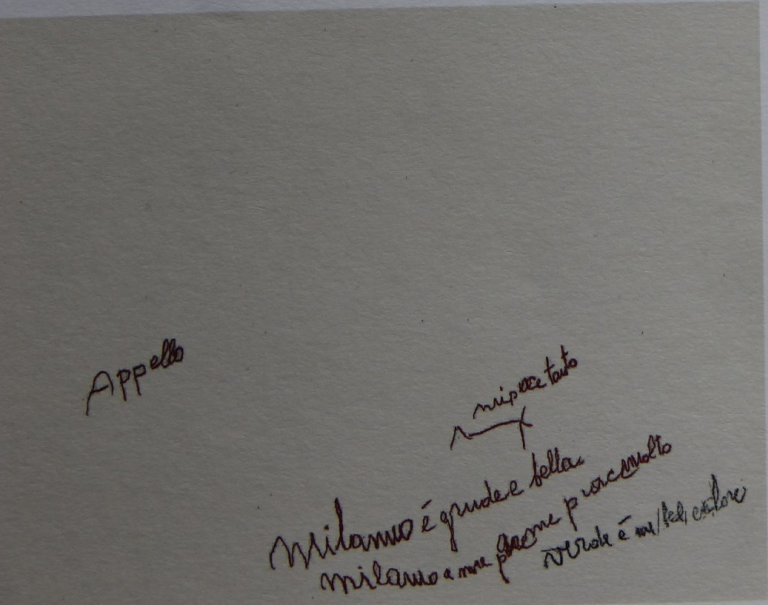 Appello
mi piace tanto
Milano é grande e bella
Milano a me piace molto
verde é un bel colore